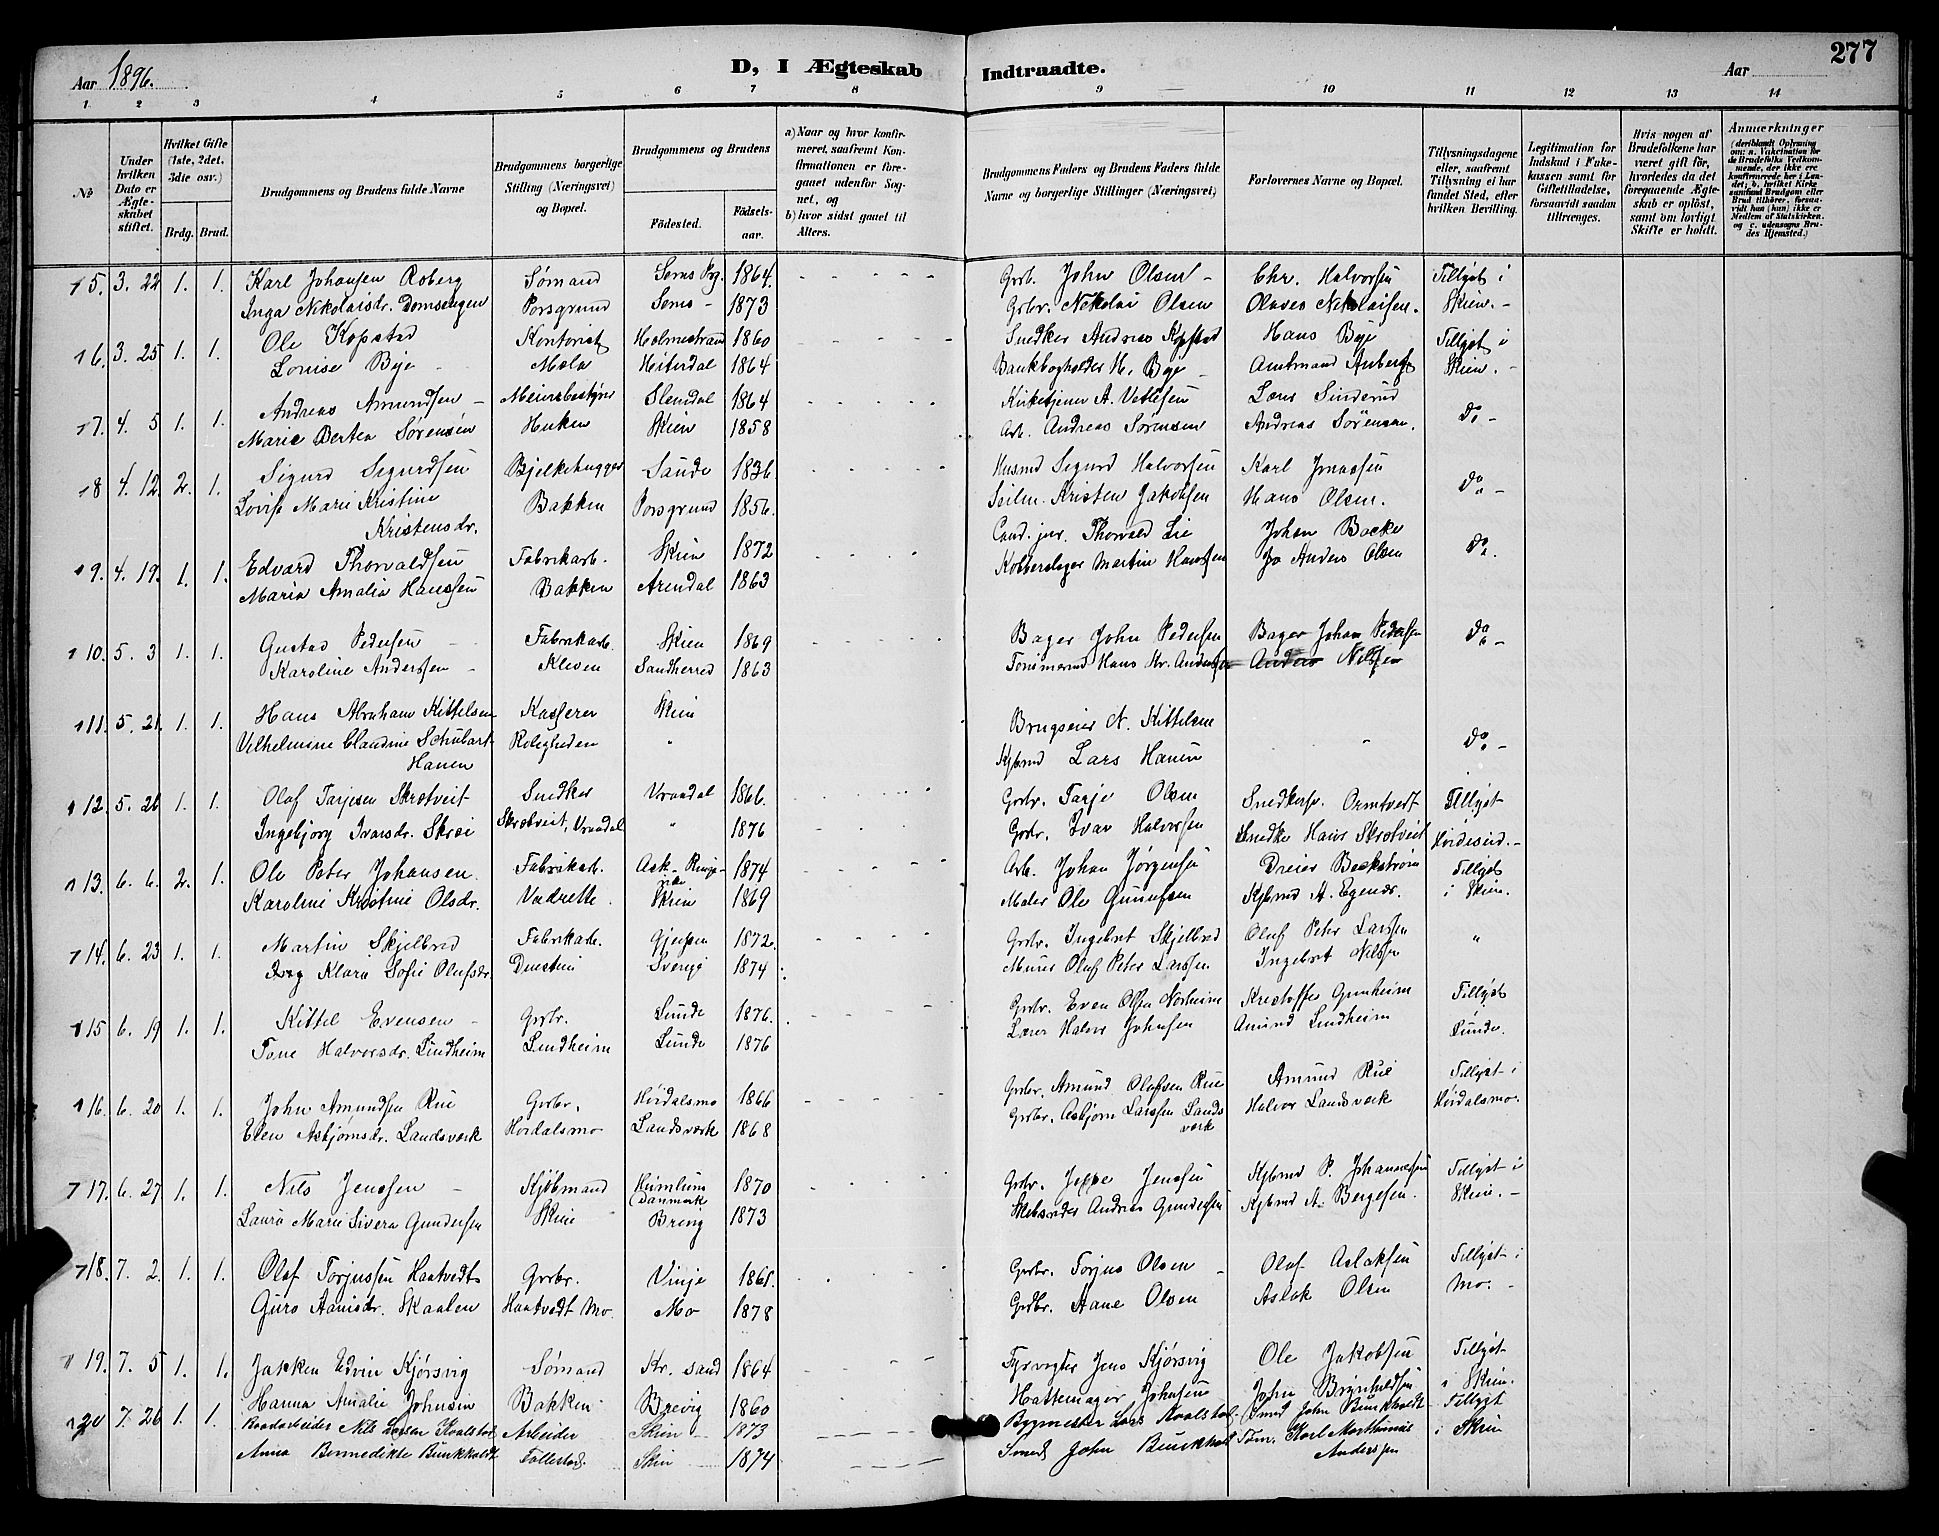 277
Aar 1896.
D, I Ægteskab Indtraadte.
Aar
1 2 3 4 5 6 7 8 9 10 11 12 13 14
No
Under hvilken Dato er Ægteskabet stiftet.
Hvilket Gifte (1ste, 2det, 3die osv.)
Brdg. Brud.
Brudgommens og Brudens fulde Navne
Brudgommens borgerlige Stilling (Næringsvei) og Bopæl.
Brudgommens og Brudens
Fødested. Fødsels-aar.
a) Naar og hvor konfirmeret, saafremt Konfirmationen er foregaaet udenfor Sognet, og
b) hvor sidst gaaet til Alters.
Brudgommens Faders og Brudens Faders fulde Navne og borgerlige Stillinger (Næringsvei)
Forlovernes Navne og Bopæl.
Tillysningsdagene eller, saafremt Tillysning ei har fundet Sted, efter hvilken Bevilling.
Legitimation for Indskud i Enkekassen samt for Giftetilladelse, forsaavidt saadan tiltrænges.
Hvis nogen af Brudefolkene har været gift før, hvorledes da det foregaaende Ægteskab er opløst, samt om lovligt Skifte er holdt.
Anmerkninger (deriblandt Oplysning om: a. Vakcination for de Brudefolks Vedkommende, der ikke ere konfirmerede her i Landet; b. hvilket Kirkesamfund Brudgom eller Brud tilhører, forsaavidt han (hun) ikke er Medlem af Statskirken, og c. udensogns Brudes Hjemsted.)
5. 3. 22 1. 1. Karl Johansen Roberg Sømand 1864. Grb. John Olsen Chr. Halvorsen Tillyst i
Inga Nikolaisdr. Domsengen Porsgrund 1873 Grbr. Nikolai Olsen Olaves Nikolaisen. Skien.
6. 3. 25. 1. 1. Ole Kopstad Kontorist Holmestrand 1860 Snedker Andreas Kopstad Hans Bye Tillyst i
Louise Bye Mæla Hiterdal 1864 Bankbogholder H. Bye Amtmand Aubert Skien.
7. 4. 5 1. 1. Andreas Amundsen Meieribestyrer Slemdal 1864 Kirketjener A. Vetlesen Lars Sinderud
Marie Bertea Sørensen Skien 1858 Arb. Andreas Sørensen Andreas Sørensen. Do
8 4. 12. 2. 1. Sigurd Sigurdsen Bjelkehugger Saude 1836. Husmd Sigurd Halvorsen Karl Jonassen
Lovise Marie Kristine Kristensdr. Bakken Porsgrund 1856. Kristen Jakobsen Hans Olsen. Do
9. 4. 19. 1. 1. Edvard Thorvaldsen Fabrikarb. Skien 1872 Cand. jur. Thorvald Lie Johan Backe
Maria Amalia Hanssen Bakken Arendal 1863 Kobberslager Martin Hanssen Jo Anders Olsen Do.
10. 5. 3 1. 1. Gustav Pedersen Fabrikarb. Skien 1869 Bager John Pedersen Bager Johan Pedersen Do
Karoline Anderssen Kleven Sandherred 1863 Tømmermd Hans Kr. Anderssen Anders Nilsen
11. 5. 21. 1. 1. Hans Abraham Kittelsen Kasserer Skien Brugseier N. Kittelsen
Vilhelmine Claudine Schubart Hauen Roligheden " Kjbmd Lars Hauen " Do
12. 5. 26 1. 1. Olaf Tarjesen Skrætveit Snedker Vraadal 1866. Grbr. Tarje Olsen Ormtvedt Tillyst
Ingebjorg Ivarsdr. Skrei Skrætveit, Vraadal " 1876 Grbr. Ivar Halvorsen Snedker Hans Skrætveit
13. 6. 6. 2. 1. Ole Peter Johansen. Fabrikarb. Ask - Ringerike 1874 Arb. Johan Jørgensen Dreier Beckstrøm Tillyst
Karoline Kristine Olsdr. Vadrette Skien 1869 Maler Ole Gunufsen Kjbmd A. Egenæs. i Skien.
14. 6. 23 1. 1. Martin Skjelbred Fabrikarb. Gjerpen 1872. Grbr. Ingebret Skjelbred Olaf Peter Larsen "
Klara Sofie Olufsdr. Sverige 1874 Murer Oluf Peter Larssen. Ingebret Nilssen
15 6. 19 1. 1. Kittel Evensen Grbr. Lunde 1876. Grbr. Even Olsen Norheim Kristoffer Gunheim Tillyst
Tone Halvorsdr. Lindheim Lindheim Lunde 1876 Lærer Halvor Johnsen Amund Lindheim Lunde.
16. 6. 20 1. 1. John Amundsen Rue Grbr. Høidalsmo 1866 Grbr. Amund Olafsen Rue Amund Rue Tillyst i
Elen Asbjørnsdr. Landsverk Høidalsmo Landsverk 1868 Grbr. Asbjørn Larssen Landsverk Halvor Landsverk Høidalsmo.
17. 6. 27 1. 1. Nils Jenssen Kjøbmand Humlum (Danmark 1870 Grbr. Jeppe Jenssen Kjbmd P. Johannesen Tillyst i
Laura Marie Sivera Gundersen Skien Brevig 1873 Andreas Gundersen Kjbmd A. Bergesen. Skien.
18. 7. 2. 1. 1. Olaf Torjussen Haatvedt Grbr. Vinje 1868. Grbr. Torjus Olsen Olaf Aslaksen Tillyst i
Guro Aanisdr. Skaalen Haatvedt Mo. Mo 1878 Grbr. Aane Olsen Aslak Olsen Mo.
19. 7. 5 1. 1. Jakken Edvin Kjørsvig Sømand Kr. sand 1864 Fyrvogter Jens Kjørsvig Ole Jakobsen Tillyst
Hanna Amalie Johnsen Bakken Brevig 1860 Hattemager Johnsen John Brynhildsen i Skien.
20 7. 26 1. 1. Nils Larsen Kvalstad Arbeider Skien 1873 Bygmester Lars Kvalstad Smed John Burkholdt Tillyst
Anna Bennedikte Burkholdt Follestad. Skien 1874 Smed John Burkholdt Tøm. Karl Marthinius Anderssen i Skien